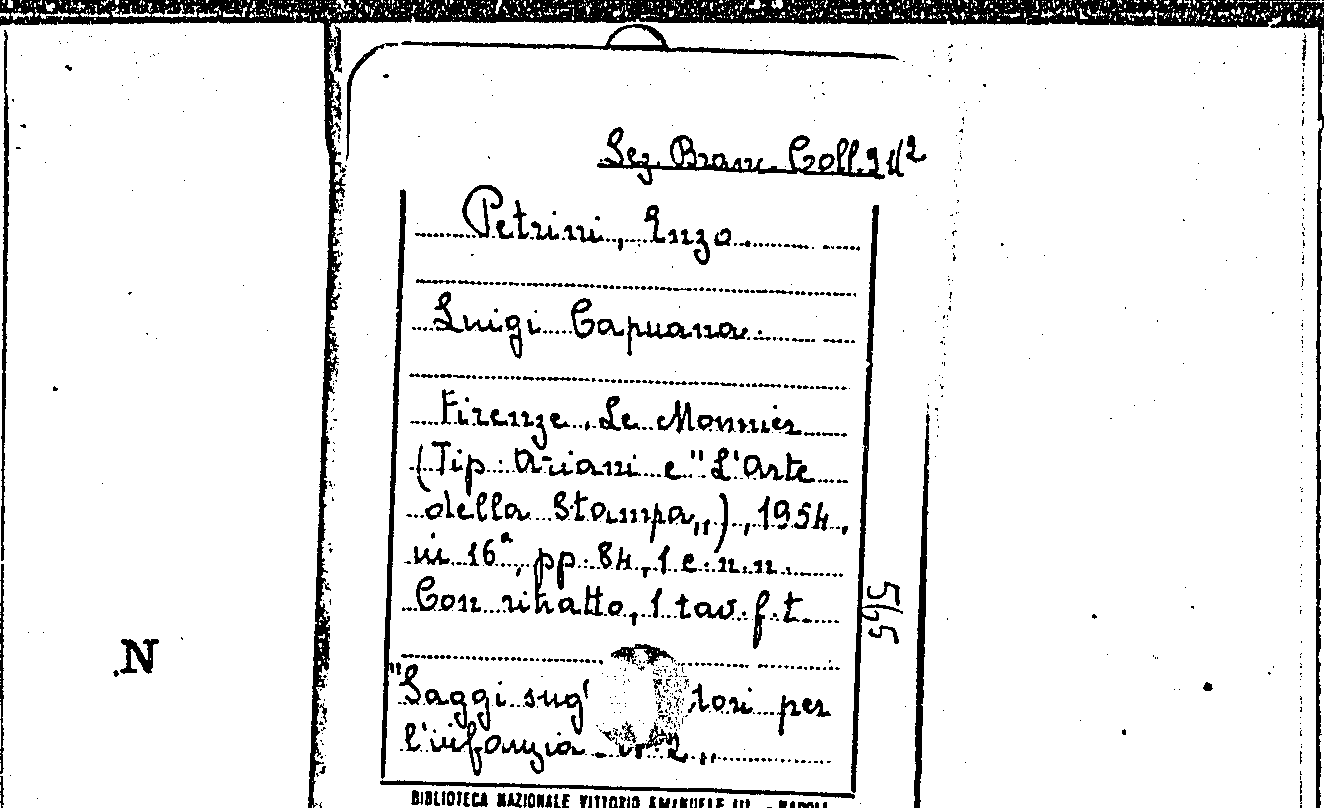 Sez. Branc. Coll.
Petrini, Enzo
Luigi Capuana.
Firenze, Le Monnier
(Tip. Ariani e "L'Arte
della Stampa„), 1954.
in 16°, pp. 84, 1 c. n. n.
Con ritratto, 1 tav. f. t.
"Saggi sug tori per
l'infanzia - n. 2„
565
N
BIBLIOTECA NAZIONALE VITTORIO EMANUELE III - NAPOLI